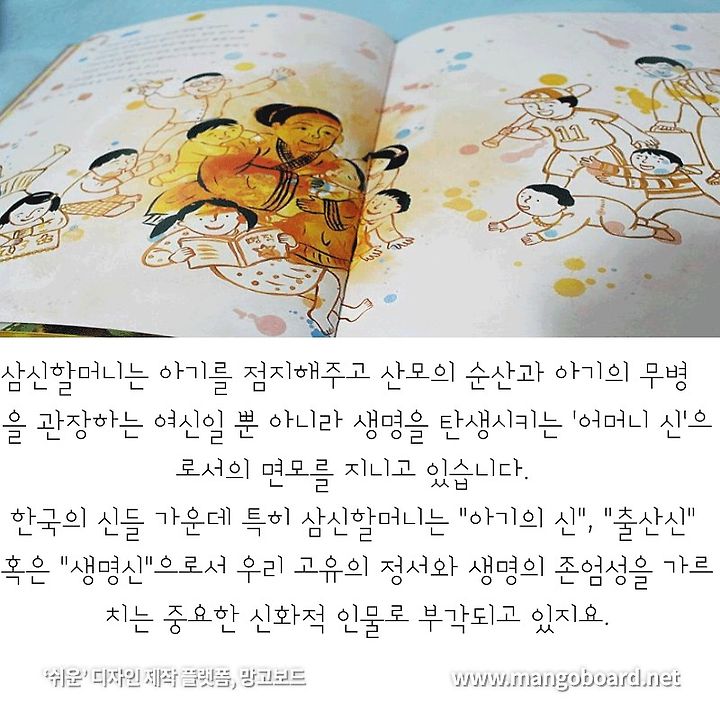 11
삼신할머니는 아기를 점지해주고 산모의 순산과 아기의 무병
을 관장하는 여신일 뿐 아니라 생명을 탄생시키는 '어머니 신'으
로서의 면모를 지니고 있습니다.
한국의 신들 가운데 특히 삼신할머니는 "아기의 신", "출산신"
혹은 "생명신"으로서 우리 고유의 정서와 생명의 존엄성을 가르
치는 중요한 신화적 인물로 부각되고 있지요.
'쉬운' 디자인 제작 플랫폼, 망고보드
www.mangoboard.net